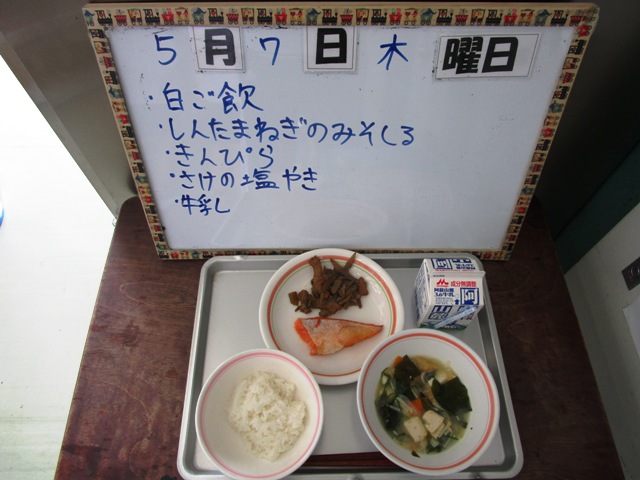 5月7日木曜日
・白ご飲
・しんたまねぎのみそしる
・きんぴら
・さけの塩やき
・牛乳し
成分無調整